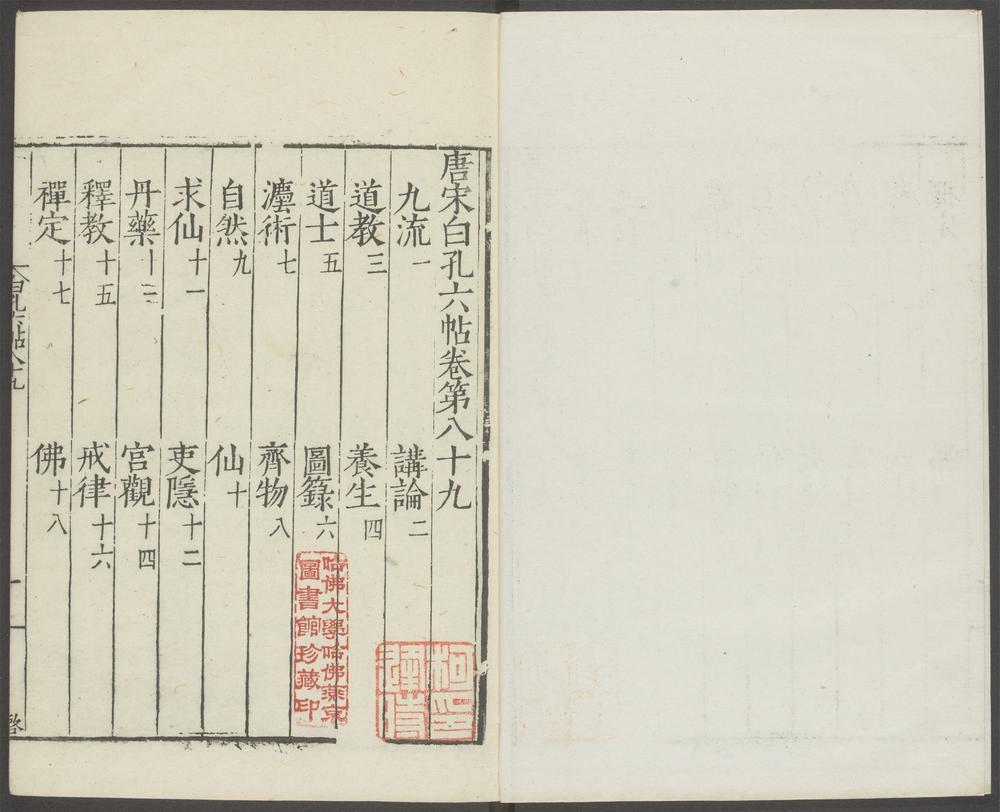 唐宋白孔六帖卷第八十九
九流一 講論二
道教三 養生四
道士五 圖籙六
灋術七 齊物八
自然九 仙十
求仙十一 吏隱十二
丹藥十三 宮觀十四
釋教十五 戒律十六
禪定十七 佛十八
哈佛大學哈佛燕京
圖書館珍藏印